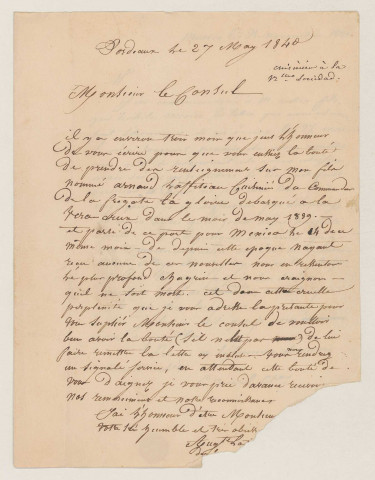 Bordeaux le 27 May 1840
cuisinier à la
Sociedad.
Monsieur le Consul
il y a environ trois mois que jeus l'honneur
de vous écrire pour que vous eussiez la bonté
de prendre des renseignemens sur mon fils
nommé arnaud Laffiteau Cuisinié du Commandan
de la frégate la gloire débarqué a la
Vera cruz dans le mois de may 1839 -
et parti de ce port pour Mexico le 14 du
même mois - de depuis cette epoque nayant
reçu aucune de ces nouvelles nous en
le plus profond chagrin et nous craignons
quil ne soit mort. cet dans cette cruelle
perplexité que je vous adresse la présante pour
vous suplier Monsieur le consul de vouloir
bien avoir la bonté (sil nest pas) de lui
faire remettre la lettre cy incluse. vous nous rendrez
un signalé service, en attendant cette bonté de
vous daignez je vous prie davance recevoir
nos remerciemens et notre reconnaissance
J'ai l'honneur d'être Monsieur
votre très humble et très obéit
Aug.te La